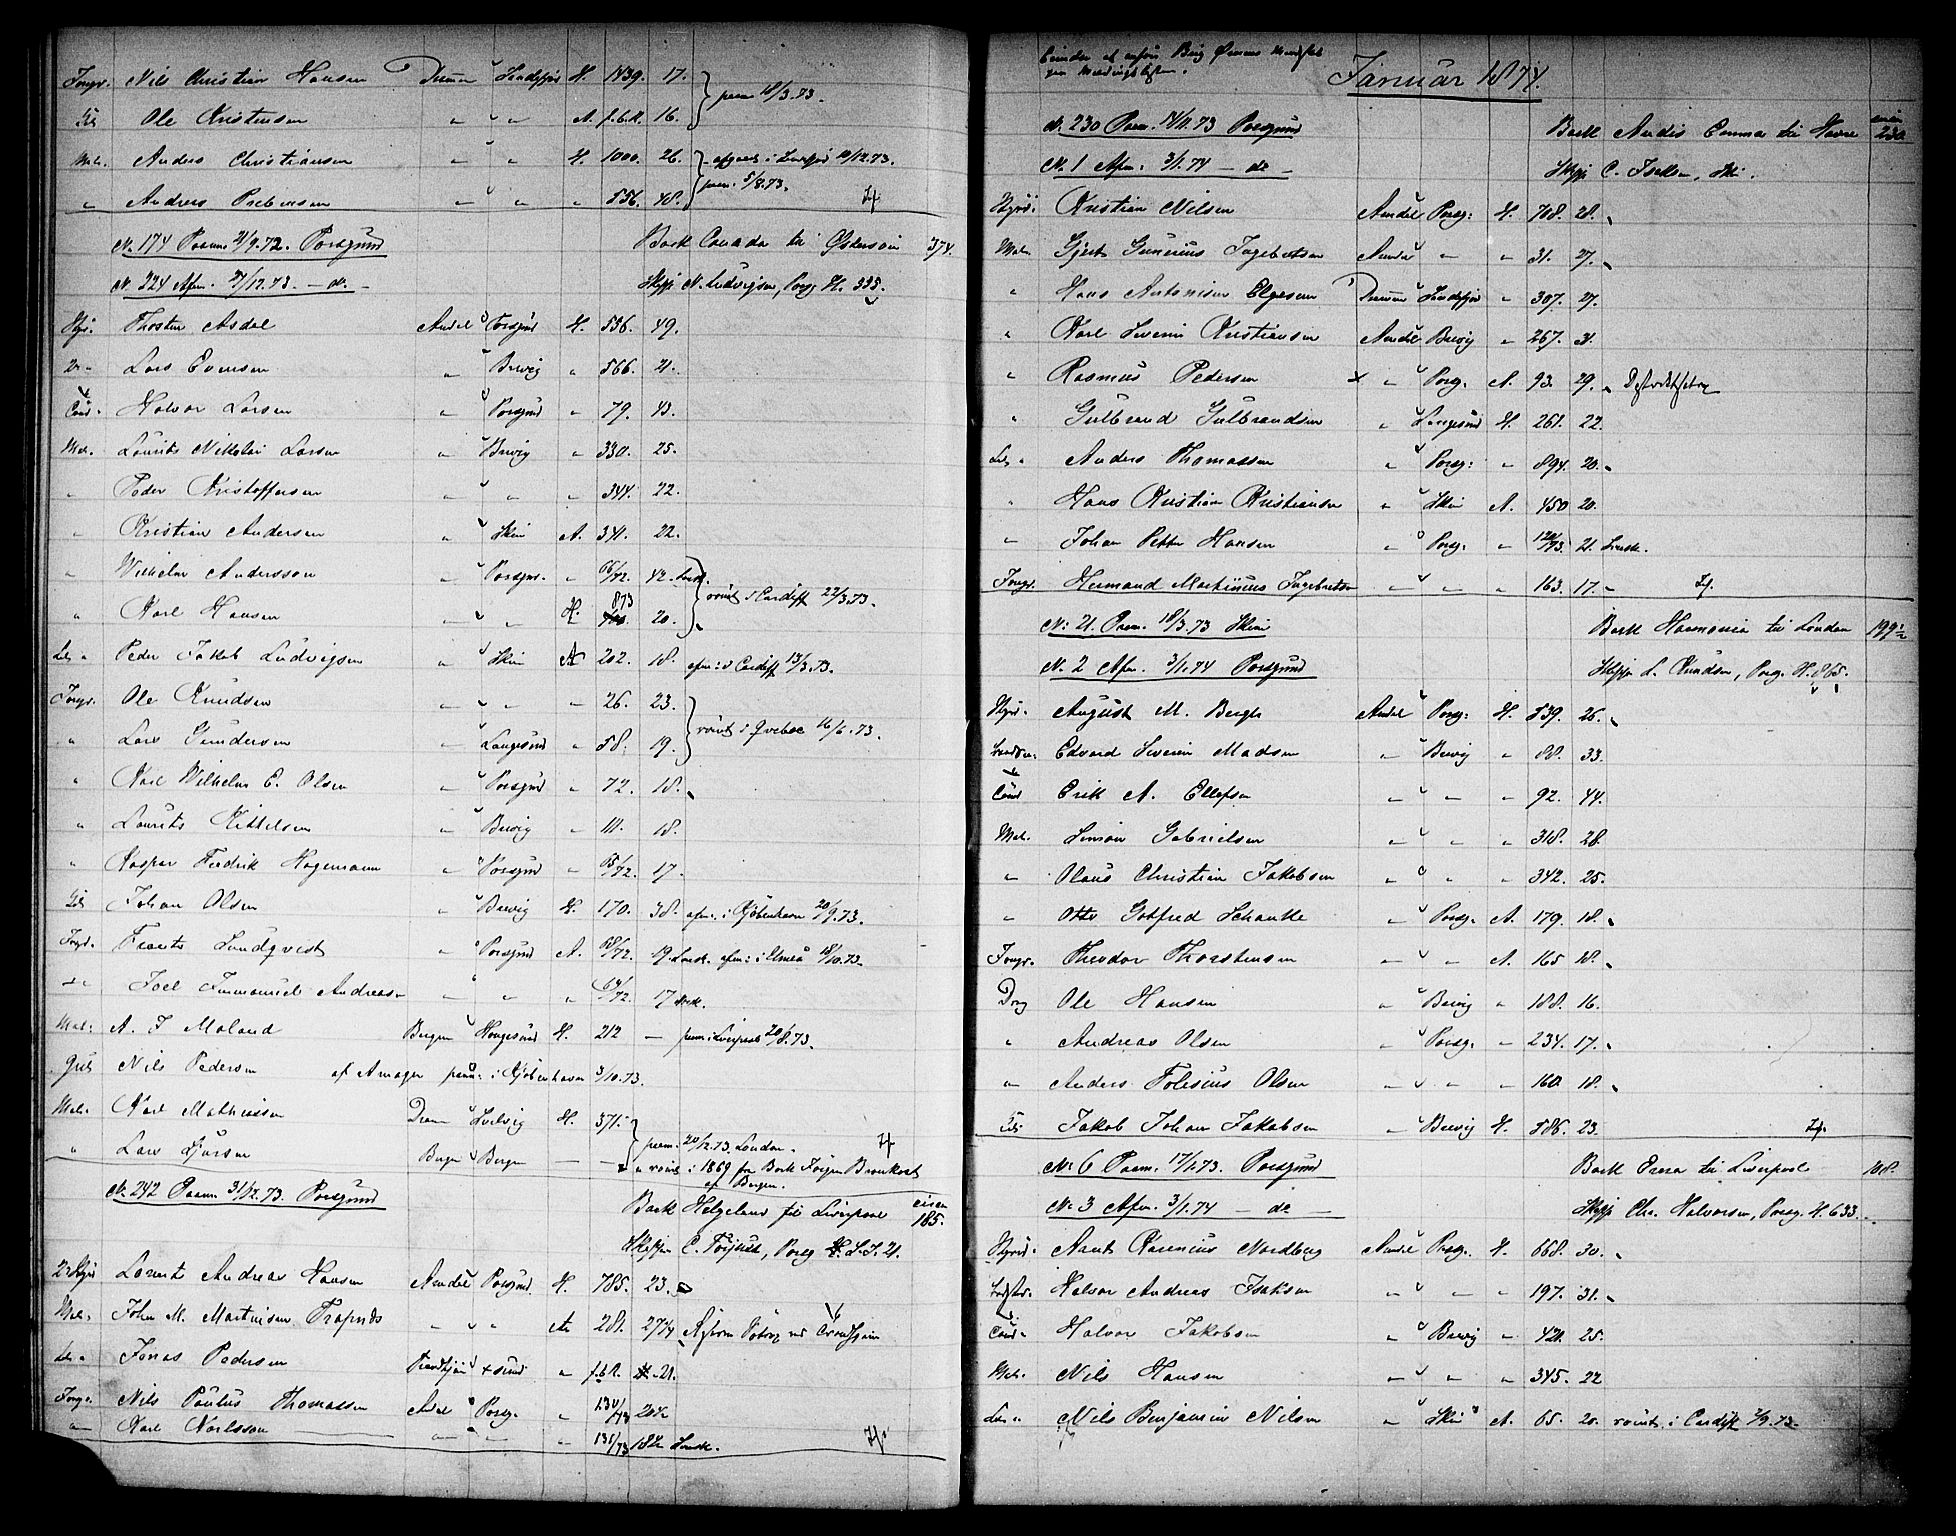 Jongs. Nils Christian Hansen Dram Sandefjor H. 1439. 17.
Ole Kristensen " " " A. f.b.R. 16. } paam 18/3.73.
Mat. Anders Christiansen " " H. 1000. 26. afgaaet i 10/12.73.
" Andreas Prebensen " " " 556. 48. paam. 5/8.73.
N. 174 Paam. 2/9.72. Porsgrund Bark Canada til Østersøen 374.
N. 224 Afm. 2/12.73. - do - Skipp N. Ludvigsen, Porsg. H. 335.
Styr. Thosten Asdal Arndal Porsgrund H. 536. 49.
2n Lars Evensen " Brevig " 566. 21.
Const. Halvor Larsen " Porsgrund " 79. 43.
Mat. Laurits Nikolai Larsen " Brevig " 330. 25.
" Peder Kristoffersen " " " 344. 22.
" Kristian Andersen " Skien A. 341. 22.
" Wilhelm Andersson " Porsgr. " 66/72. 42. svensk.
" Karl Hansen " " H. 873 20. } rømt i Cardiff 22/3.73.
Let. " Peder Jakob Ludvigsen " Skien A 202. 18. afm. i Cardiff 13/3.73.
Jongr. Ole Knudsen " " " 26. 23.
" Lars Gundersen " Langesund " 58. 19. } rømt i Qvebec 16/6.73.
" Karl Wilhelm E. Olsen " Porsgrund " 72. 18.
" Laurits Kittelsen " Brevig " 111. 18.
" Kaspar Fredrik Hagemann " Porsgrund " 65/72. 17.
Let. Johan Olsen " Brevig H. 170. 38. afm. i Kjøbenhavn 20/9.73.
Jongr. Frants Lundqvist " Porsgrund A. 68/72. 19. svensk. afm. i Umeå 18/10.73.
" Joel Immanuel Andreas " " " 69/72. 17 svensk.
Mat. A. J Moland Bergen Haugesund H. 212 - paam i Liverpool 20/8.73.
Nils Pedersen af Amager paam. i Kjøbenhavn 3/10.73.
Mat. Karl Mathiesen Dram Larvig H. 371.
" Lars Bergen Bergen - - } paam. 20/12.73. London.
rømt i 1869 fra Bark Jørgen Brunkhorst af Bergen.
N. 242 Paam. 31/12.73. Porsgrund Bark Helgeland til Liverpool circa 185.
C. Porsg L.S. 21.
2n Styr Laurits Andreas Hansen Arndal Porsgrund. H. 785. 23.
Mat. John M. Martinsen " " " A 281. 27
Let. " Jonas Pedersen Trondhjem Xsund " f.b.R. 21.
Jongr. Nils Paulus Thomassen Arndal Porsg. " 130/73 20
" Karl Karlsson " " " 131/73 18 svensk.
Januar 1874.
N. 230 Paam. 14/11.73 Porsgrund Bark Andis Emma til Havre circa 230.
N. 1 Afm. 3/1.74 - do - Skipp C. Isaksen, Ski.
Styr. Kristian Nilsen Arndal Porsg. H. 708. 28.
Mat. Gjert Gunerius Ingebretsen Arndal " " 31. 27.
" Hans Antonisen Elgesem Dram Sandefjor " 307. 27.
" Karl Severin Kristiansen Arndal Brevig " 267. 31.
" Rasmus Pedersen X " Porsg. A. 93. 29.
" Gulbrand Gulbrandsen " Langesund H. 261. 22.
Let. " Anders Thomassen " Porsg. " 894. 20.
" Hans Kristian Kristiansen " Skien A. 450 20.
" Johan Petter Hansen " Porsg. " 120/73. 21. svensk.
Jongr. Hermand Martinius Ingebretsen " " " 163. 17.
N. 21. Paam. 18/3.73 Skien Bark Harmonia til London 199½
N. 2 Afm. 3/1.74 Porsgrund Skipp L. Knudsen, Porsg. H. 865.
Styr. August M. Bergh Arndal Porsg. H. 539. 26.
Edvard Severin Madsen " Brevig " 88. 33.
Const Erik A. Ellefsen " " " 92. 44.
Mat. Simon Gabrielsen " " " 318. 28.
" Olaus Christian Jakobsen " " " 342. 25.
" Otto Gotfred Schanke " Porsg. A. 179. 18.
Jongr. Theodor Thorstensen " " A. 165 18.
Drg Ole Hansen " Brevig " 188. 16.
" Andreas Olsen " Porsg. " 234. 17.
" Anders Tobias Olsen " " " 160. 18.
Let. Jakob Johan Jakobsen " Brevig H. 586. 23.
N. 6 Paam. 17/1.73. Porsgrund Bark til Liverpool 108.
N. 3 Afm. 3/1.74 - do - Skipp Chr. Halvorsen, Porsg. H. 633.
Styr. Aanet Karenius Nordberg Arndal Porsg. H. 668. 30.
Halvor Andreas Isaksen " " " 197. 31.
Const. Halvor Jakobsen " Brevig " 421. 25.
Mat. Nils Hansen " " " 345. 22
Let. " Nils Benjamin Nilsen " Skien A. 65. 20. rømt i Cardiff 2/9.73.